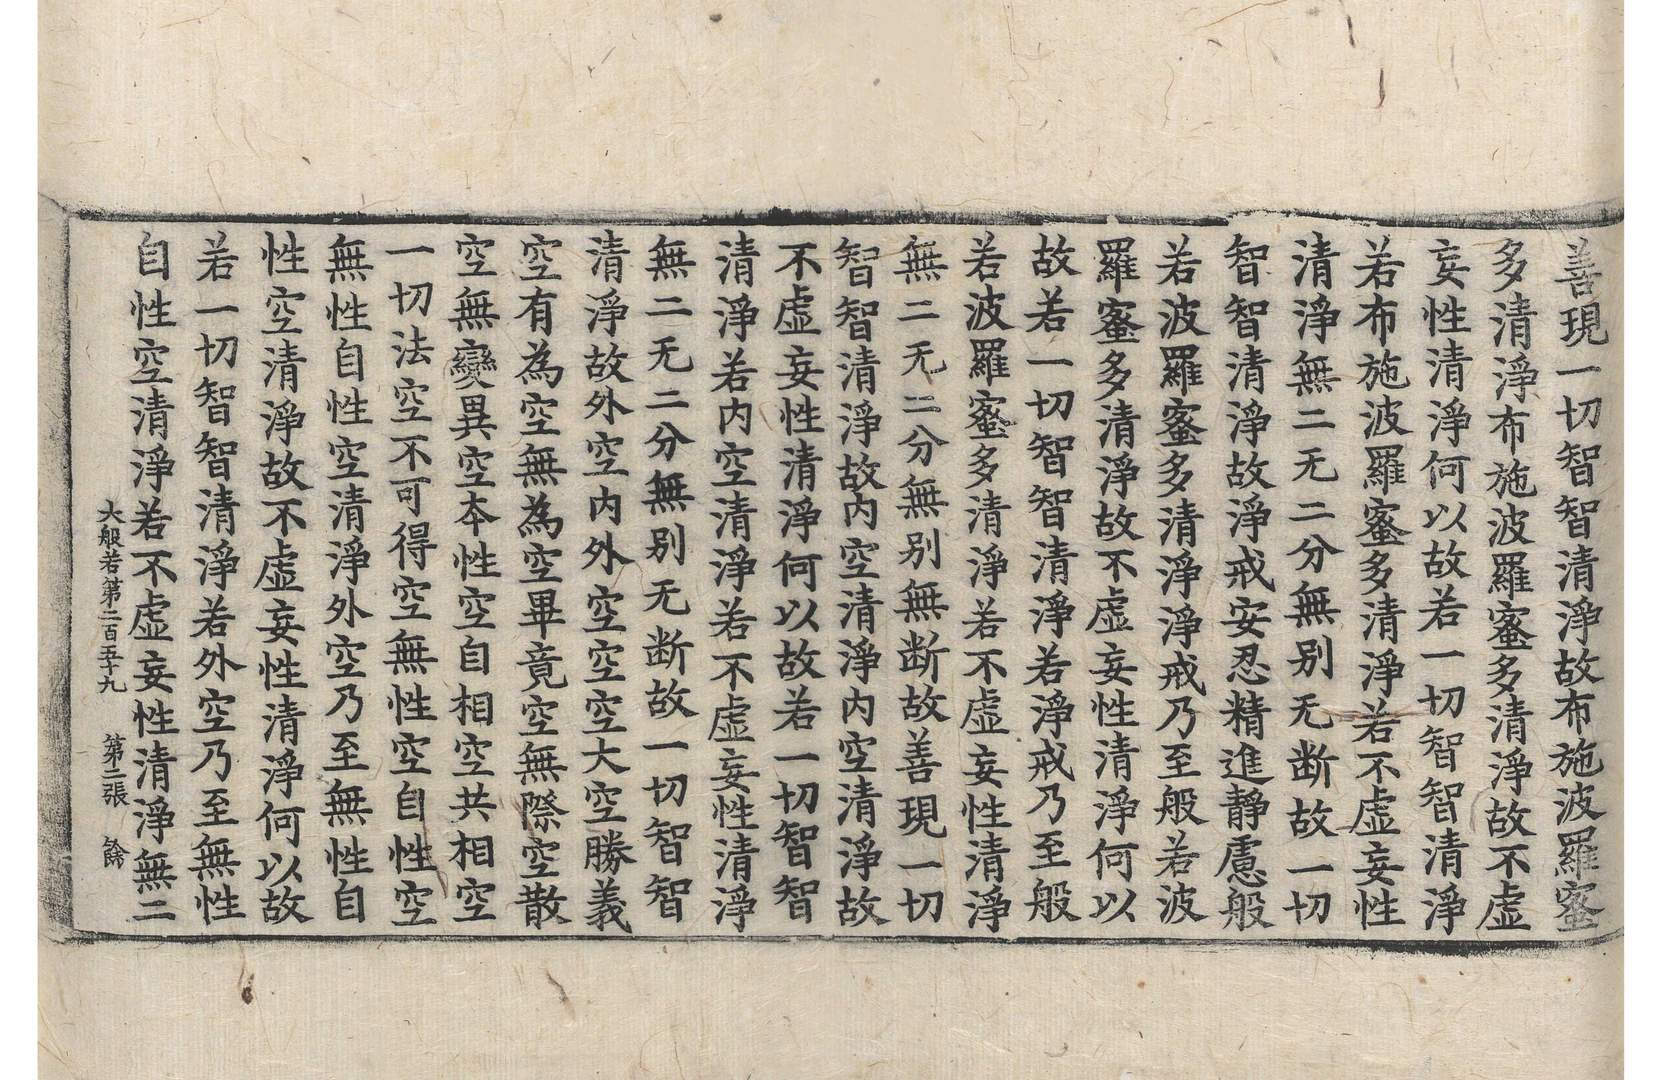 善現一切智智清淨故布施波羅蜜
多清淨布施波羅蜜多清淨故不虛
妄性清淨何以故若一切智智清淨
若布施波羅蜜多清淨若不虛妄性
清淨無二无二分無别无断故一切
智智清淨故淨戒安忍精進靜慮般
若波羅蜜多清淨淨戒乃至般若波
羅蜜多清淨故不虛妄性清淨何以
故若一切智智清淨若淨戒乃至般
若波羅蜜多清淨若不虛妄性清淨
無二无二分無别無断故善現一切
智智清淨故内空清淨内空清淨故
不虛妄性清淨何以故若一切智智
清淨若内空清淨若不虛妄性清淨
無二无二分無别无断故一切智智
清淨故外空内外空空空大空勝義
空有為空無為空畢竟空無際空散
空無變異空本性空自相空共相空
一切法空不可得空無性空自性空
無性自性空清淨外空乃至無性自
性空清淨故不虛妄性清淨何以故
若一切智智清淨若外空乃至無性
自性空清淨若不虛妄性清淨無二
大般若第二百五十九 第二張 餙